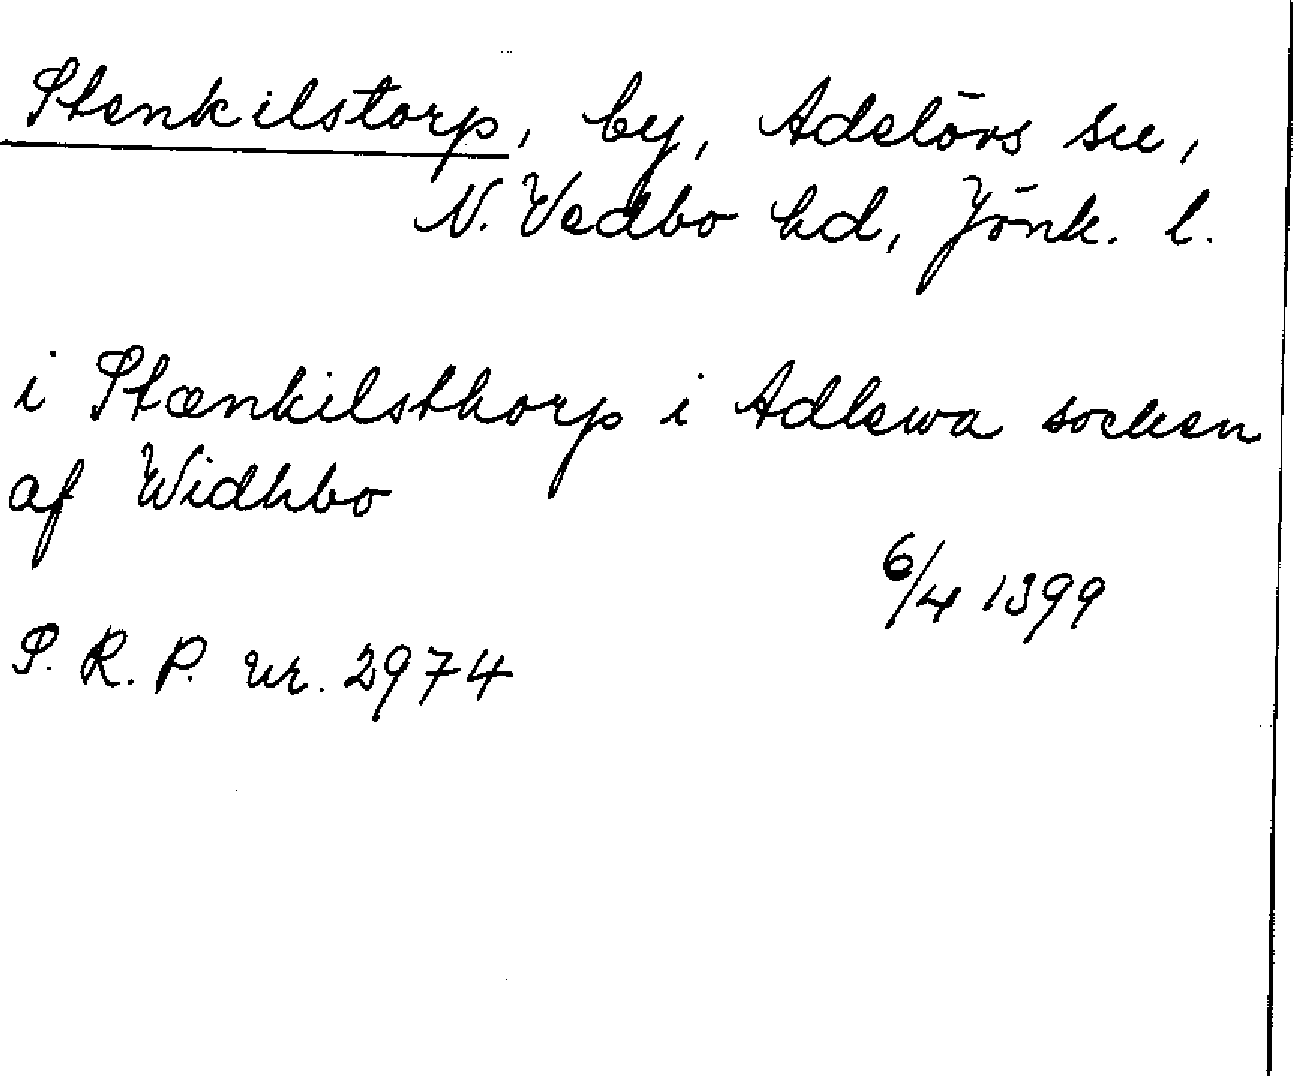 Stenkilstorp, by, Adelövs sn,
N. Vedbo hd, Jönk. l.
i Stænkilsthorp i Adlewa socken
af Widhbo
6/4 1399
S. R. P. nr. 2974